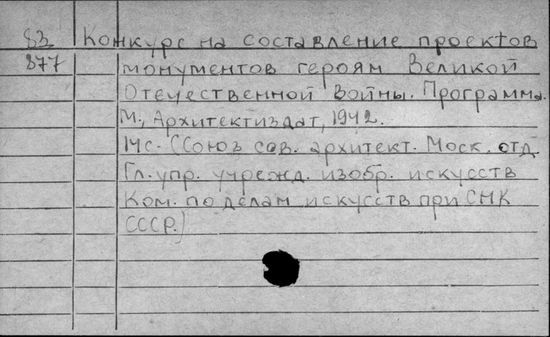 83 Конкурс на составление проектов
877 монументов героям Великой
Отечественной войны. Программа.
М., Архитектиздат, 1942.
14с. (Союз сов. архитект. Моск. отд.
Гл. упр. учрежд. изобр. искусств
Ком. по делам искусств при СНК
СССР.)